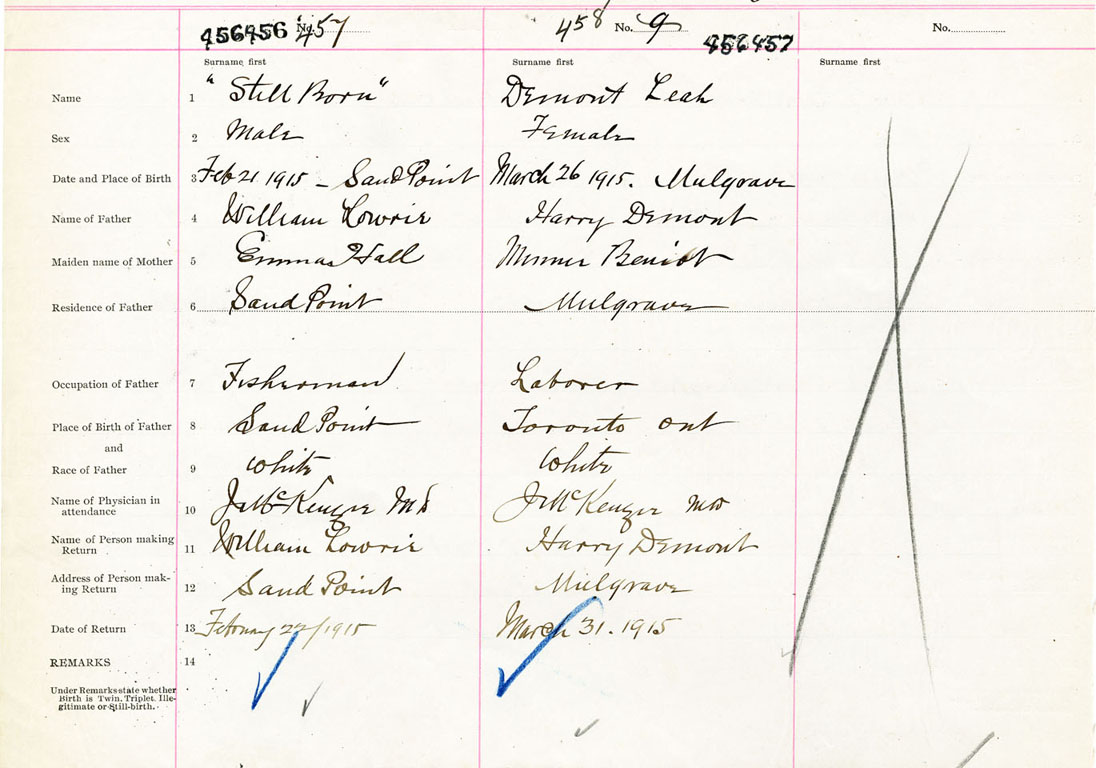 456456 No. 457 458 No. 9 456457 No.
Surname first Surname first Surname first
Name 1 "Still Born" Demont Leah
Sex 2 Male Female
Date and Place of Birth 3 Feb 21 1915 - Sand Point March 26 1915. Mulgrave
Name of Father 4 William Lowrie Harry Demont
Maiden name of Mother 5 Emma Hall Benoit
Residence of Father 6 Sand Point Mulgrave
Occupation of Father 7 Fisherman Laborer
Place of Birth of Father 8 Sand Point Toronto Ont
and
Race of Father 9 White White
Name of Physician in
attendance 10 J McKenzie MD J McKenzie MD
Name of Person making
Return 11 William Lowrie Harry Demont
Address of Person mak-
ing Return 12 Sand Point Mulgrave
Date of Return 13 February 22/1915 March 31. 1915
REMARKS 14
Under Remarks state whether
Birth is Twin, Triplet, Ille-
gitimate or Still-birth.